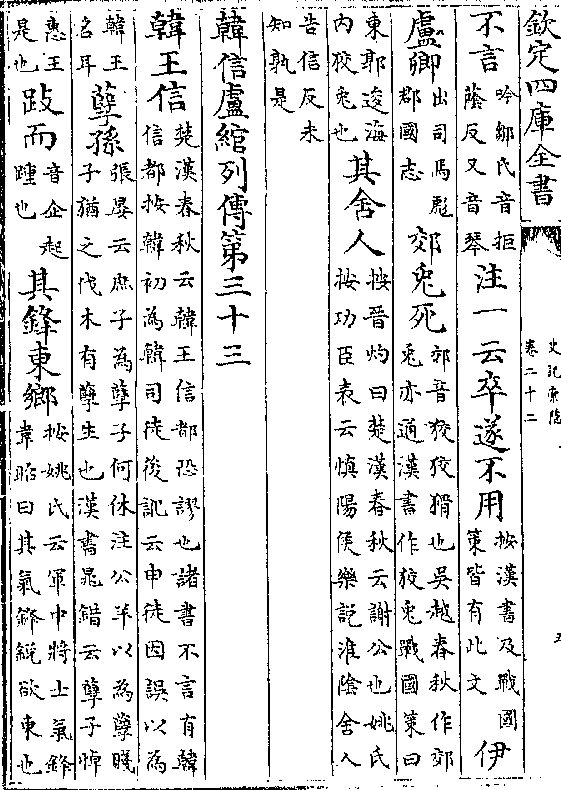 欽定四庫全書
史記索隱
卷二十二
五
不言吟鄒氏音拒蔭反又音琴注一云卒遂不用按漢書及戰國策皆有此文伊
盧卿出司馬彪郡國志郊兔死郊音狡狡猾也吳越春秋作郊兔亦通漢書作狡兔戰國策曰
東郭逡海内狡兔也其舍人按晉灼曰楚漢春秋云謝公也姚氏按功臣表云慎陽侯樂説淮陰舍人
告信反未知孰是
韓信盧綰列傳第三十三
韓王信楚漢春秋云韓王信都恐謬也諸書不言有韓信都按韓初為韓司徒後訛云申徒因誤以為
韓王名耳孽孫張晏云庶子為孽子何休注公羊以為孽賤子猶之伐木有孽生也漢書晁錯云孽子悼
惠王是也跂而音企起踵也其鋒東鄉按姚氏云軍中將士氣鋒韋昭曰其氣鋒鋭欲東也